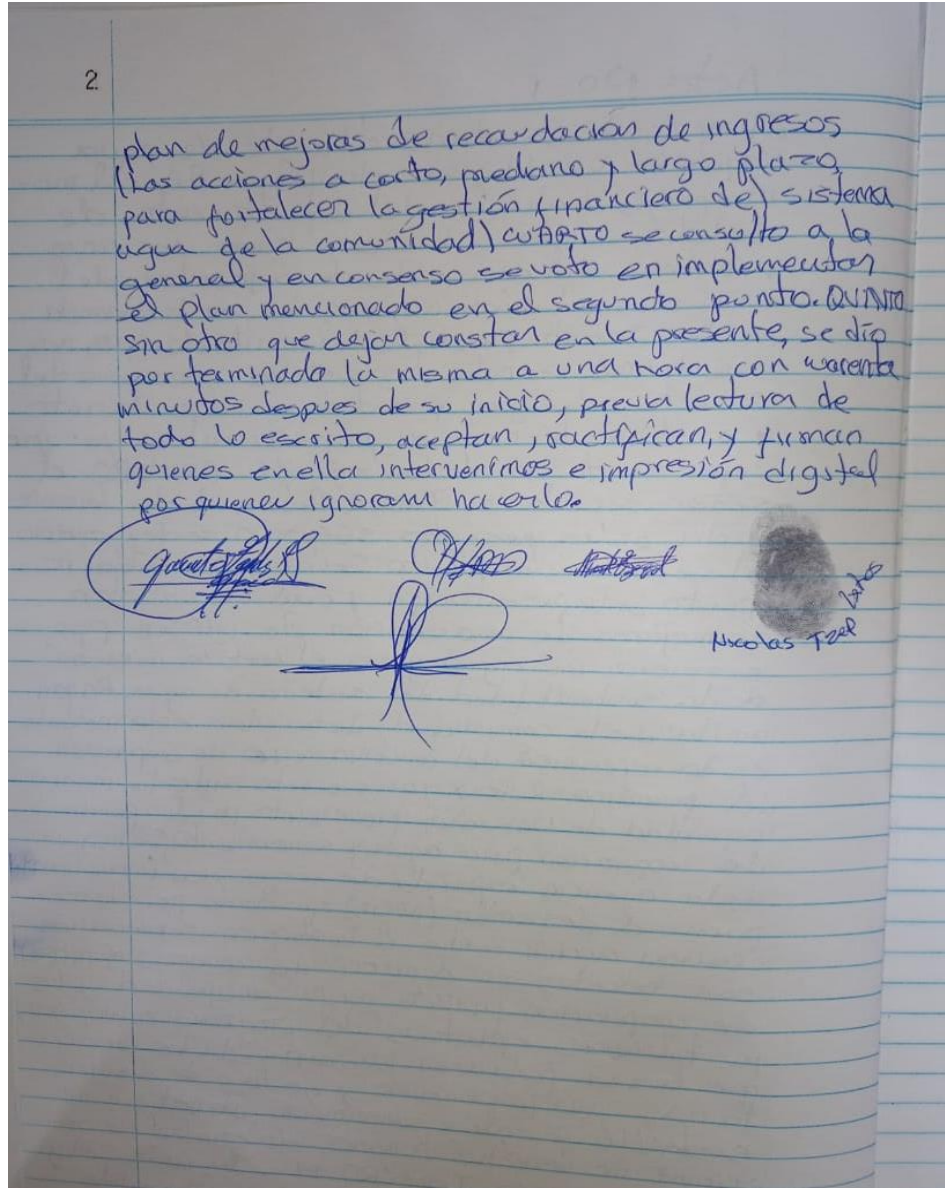 2.
plan de mejoras de recaudación de ingresos
(Las acciones a corto, mediano y largo plazo,
para fortalecer la gestión financiero del sistema
agua de la comunidad) CUARTO se consulto a la
general y en consenso se voto en implementar
el plan mencionado en el segundo punto. QUINTO
sin otro que dejar constar en la presente, se dio
por terminada la misma a una hora con cuarenta
minutos despues de su inicio, previa lectura de
todo lo escrito, aceptan, ractifican, y firman
quienes en ella intervenimos e impresión digital
por quienes ignoram hacerlo.
Nicolas Tzep